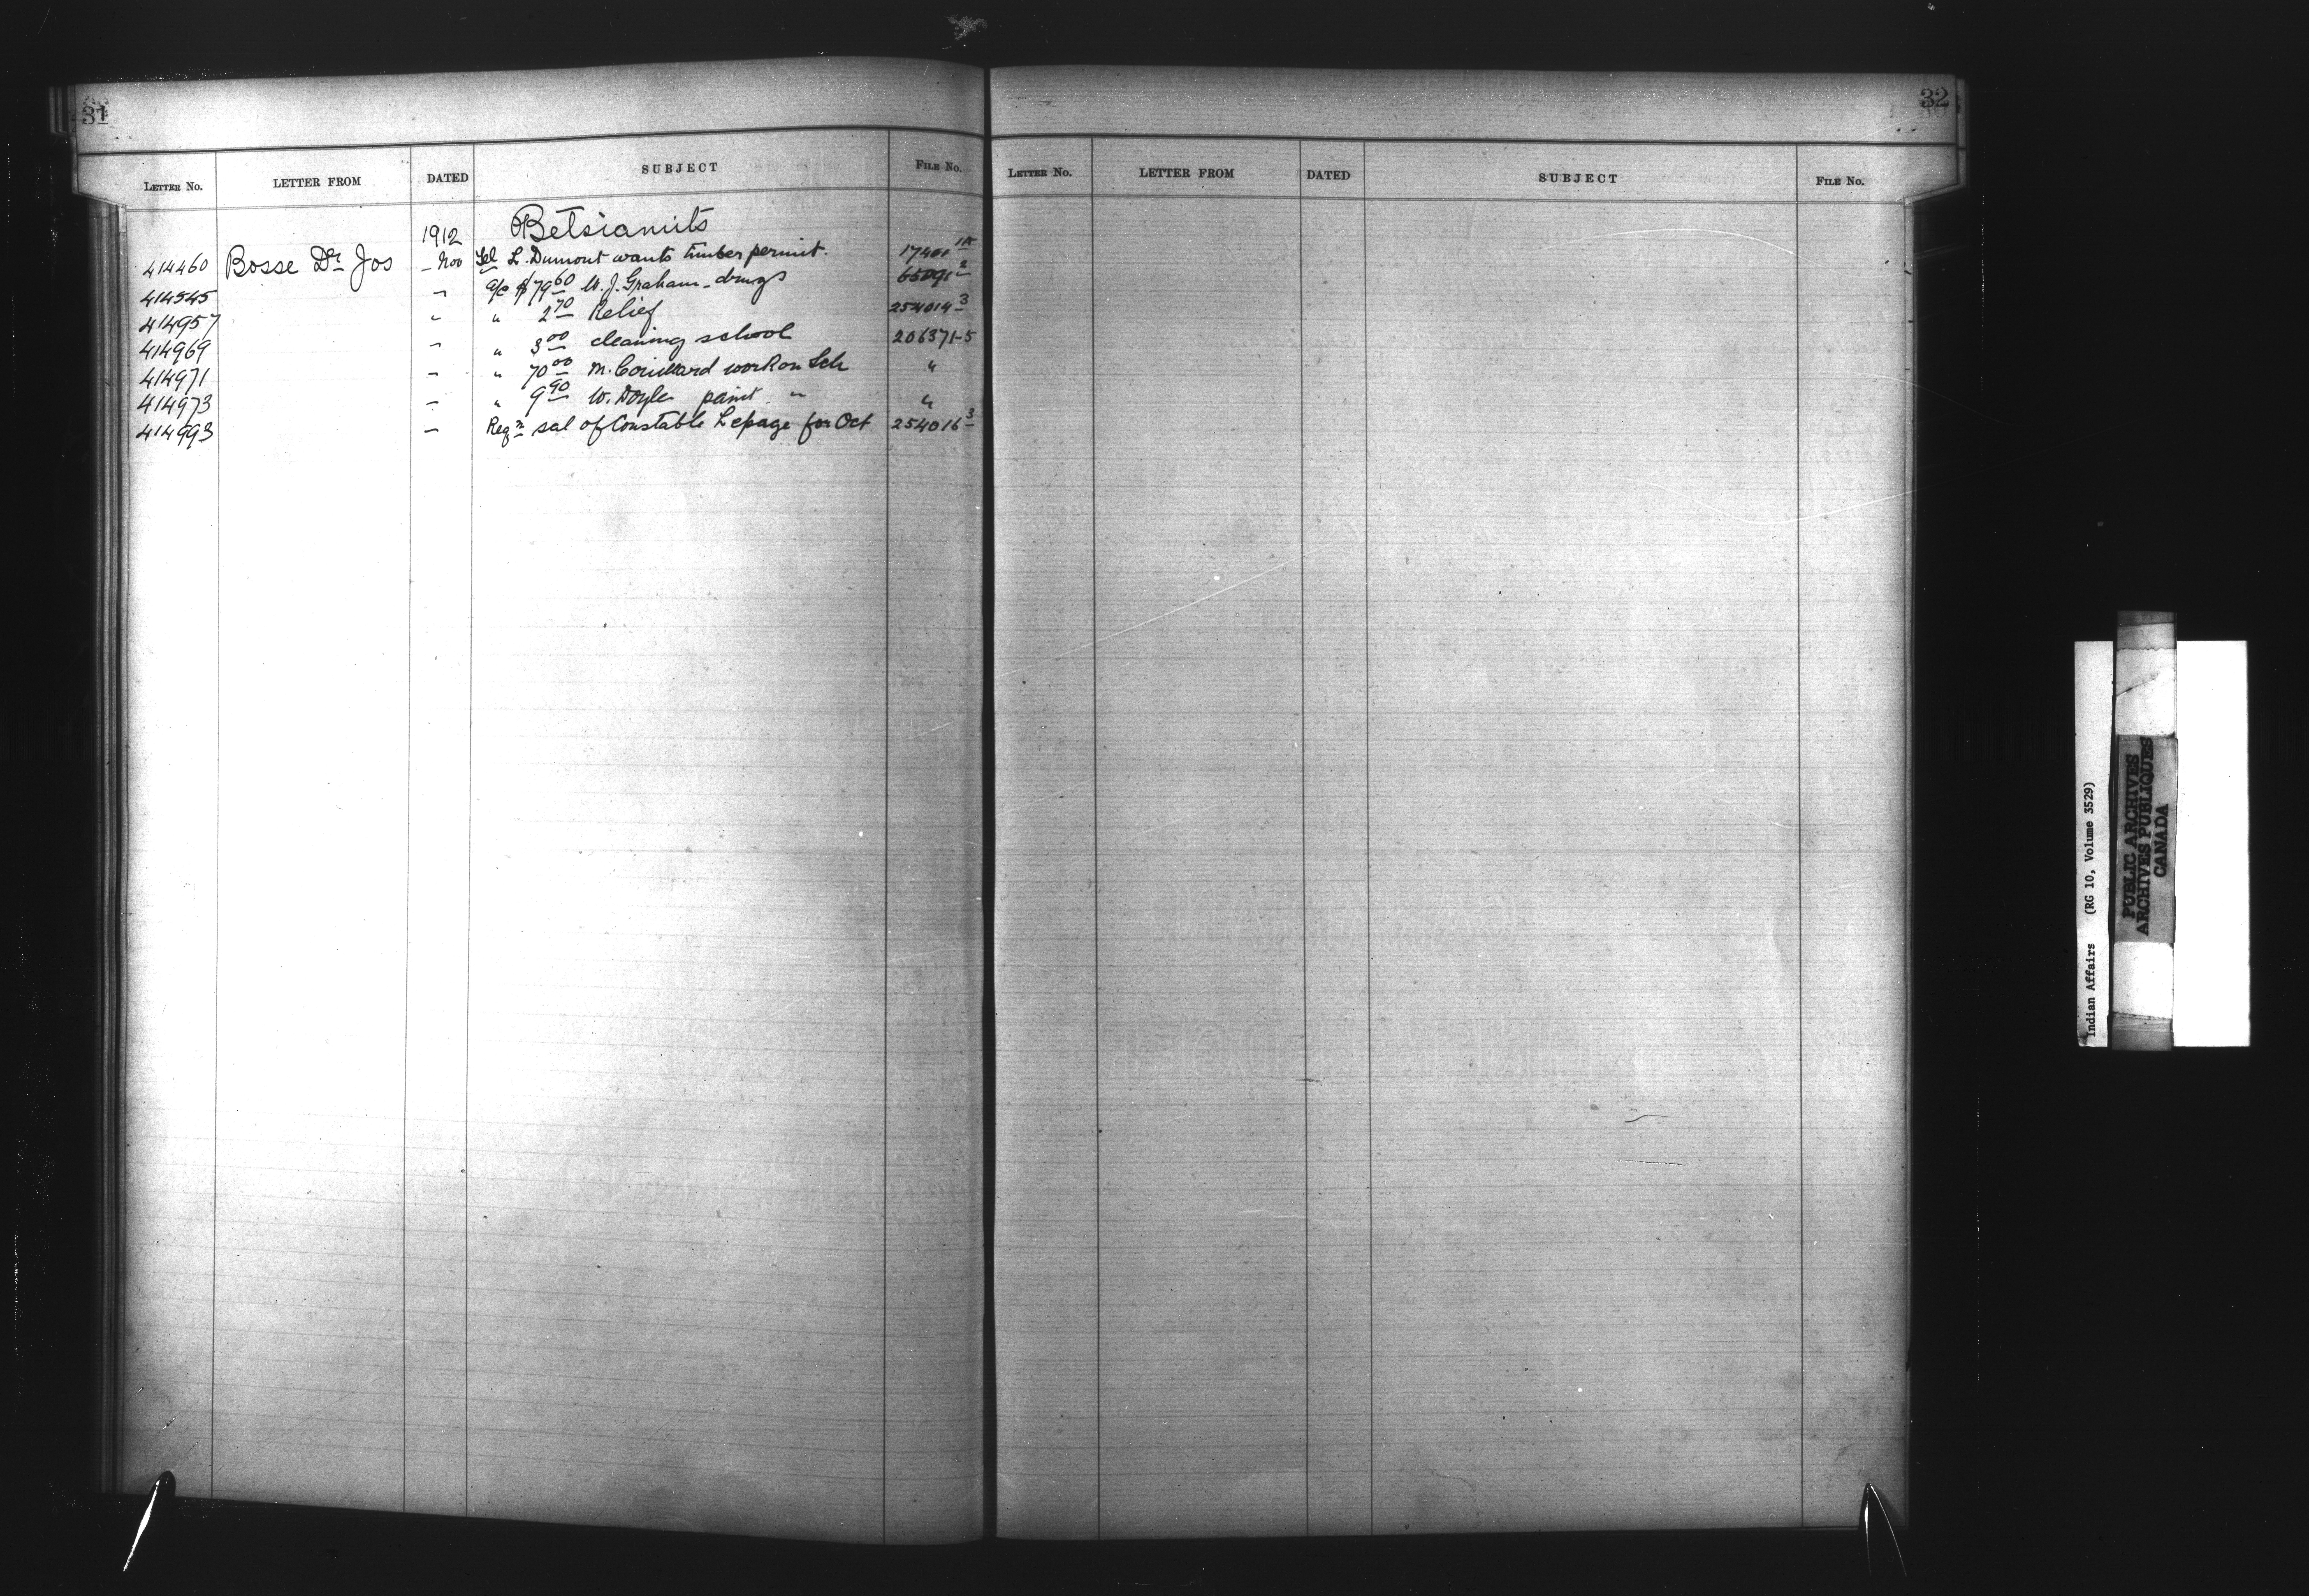 31
LETTER No. LETTER FROM DATED SUBJECT FILE No.
1912 Betsiamits
414460 Bosse Dr Jos – Nov Tel L. Dumont wants timber permit. 17401
414545 – a/c $79 60 W. J. Graham – drugs 65091 2
414957 – " 2 70 Relief 254014 3
414969 – " 3 00 cleaning school 206371-5
414971 – " 70 00 M. Couillard work on Sch "
414973 – " 9 90 W. Doyle paint " "
414993 – Reqn sal of Constable Lepage for Oct 254016 3
32
LETTER No. LETTER FROM DATED SUBJECT FILE No.
Indian Affairs (RG 10, Volume 3529)
PUBLIC ARCHIVES
ARCHIVES PUBLIQUES
CANADA